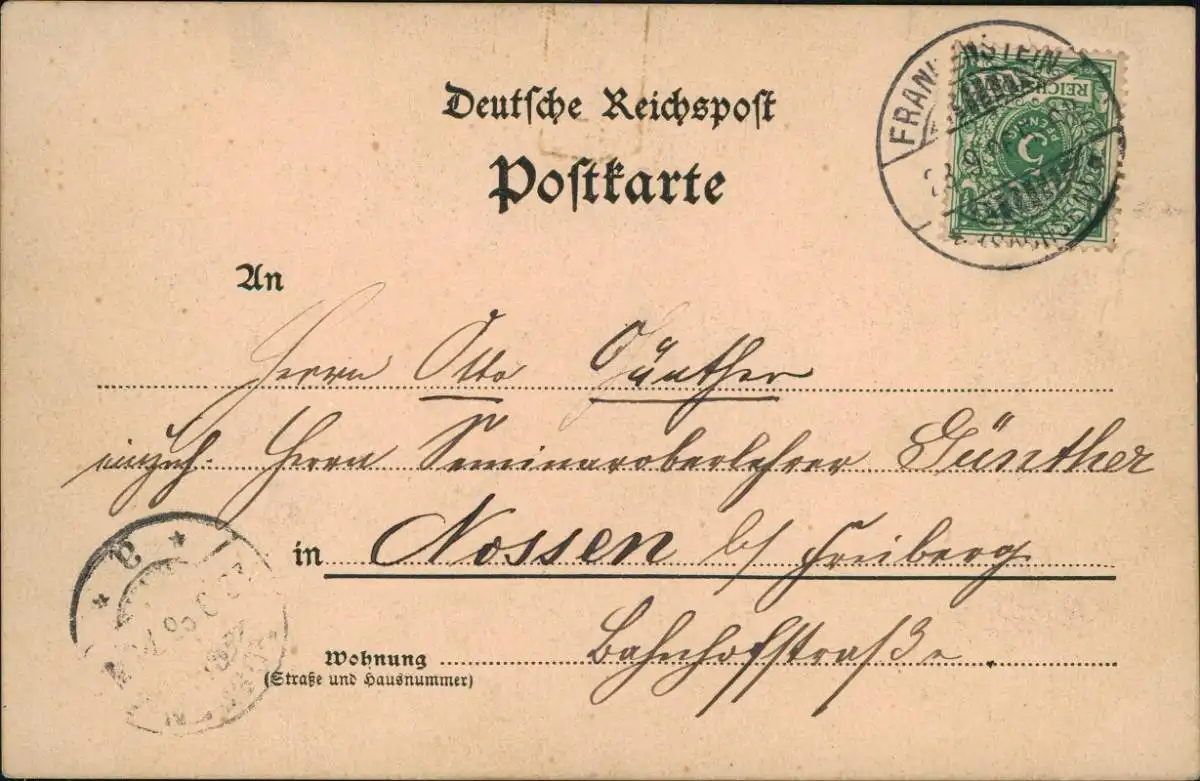 Deutsche Reichspost
Postkarte
FRANKENSTEIN
(SACHSEN)
REICHSPOST
5
PFENNIG
An
Herrn Otto Günther
Herrn Seminaroberlehrer Günther
in Nossen b/ Freiberg
Bahnhofstraße.
Wohnung
(Straße und Hausnummer)